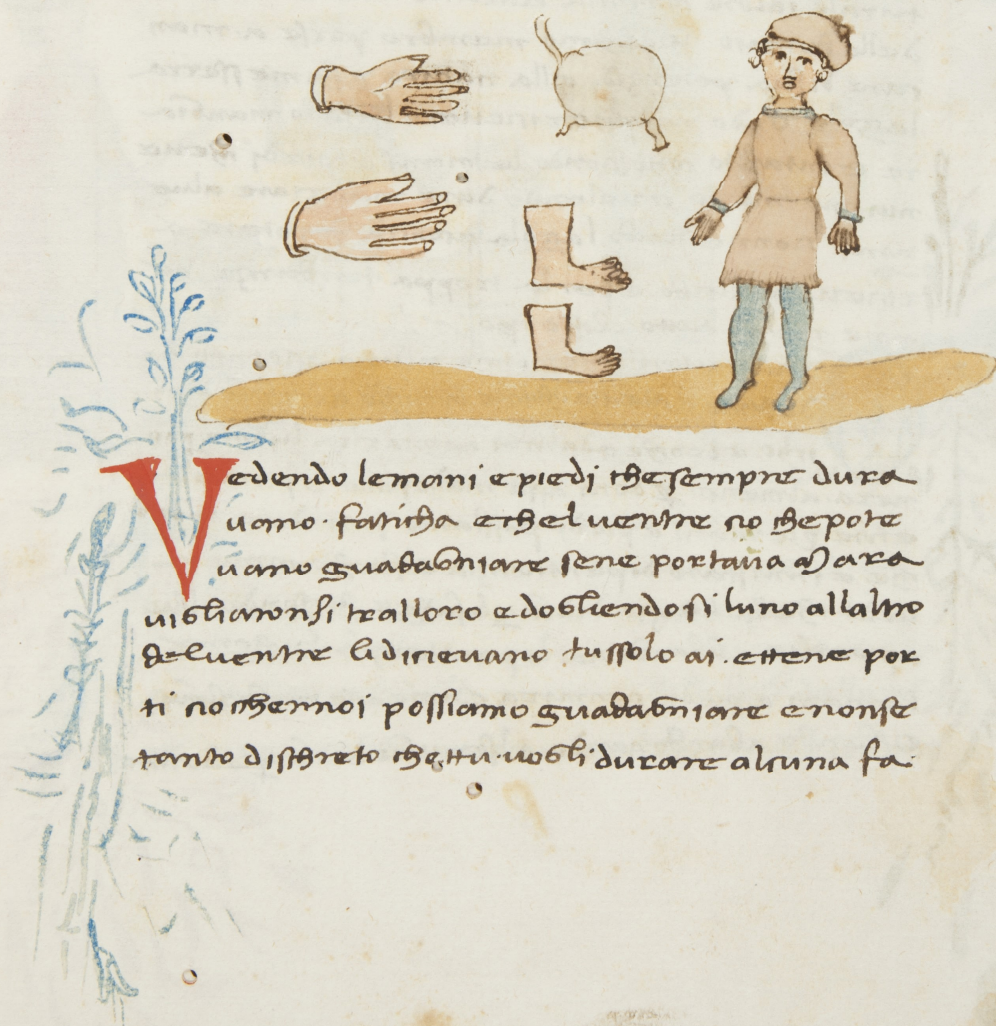 Vedendo lemani e piedi che sempre dura
uano · faticha e chel uentre cio che pote
uano guadagniare sene portaua Mara
uigliaronsi tralloro e dogliendosi luno allaltro
del uentre li diceuano tussolo ai · ettene por
ti cio chennoi possiamo guadagniare e nonse
tanto dischreto che ttu uogli durare alcuna fa